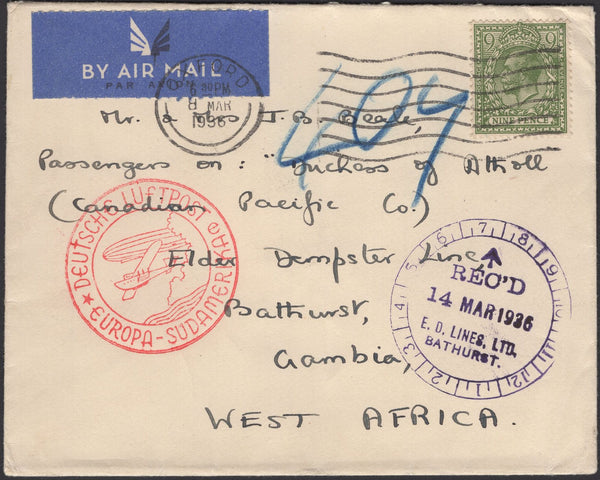 BY AIR MAIL
PAR AVION
8 MAR
1936
9 9
NINE PENCE
409
Mr. & Miss J. B. Beale,
Passengers on: "Duchess of Atholl
(Canadian Pacific Co.)
Elder Dempster Line,
Bathurst,
Gambia,
WEST AFRICA.
DEUTSCHE LUFTPOST
EUROPA-SUDAMERIKA
REC'D
14 MAR 1936
E. D. LINES, LTD.
BATHURST.
1 2 3 4 5 6 7 8 9 12